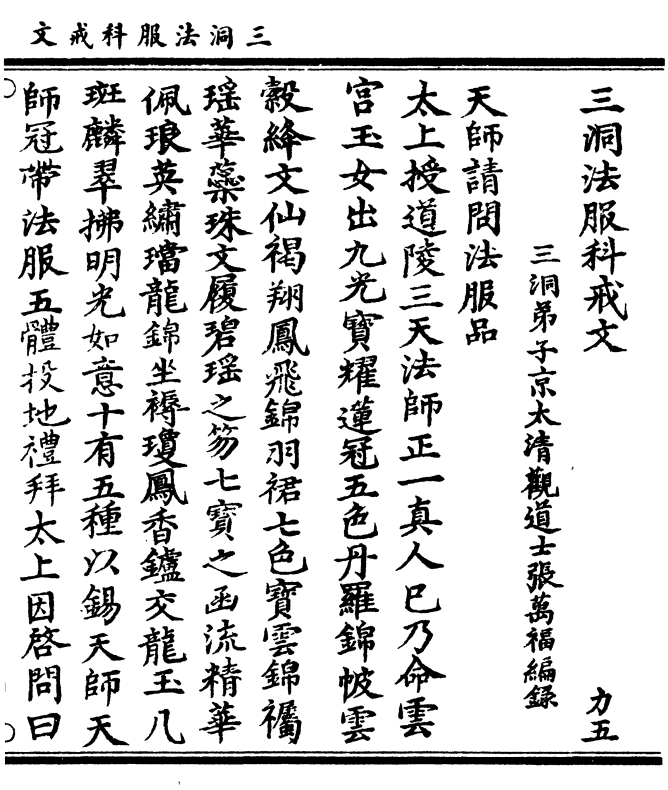 三洞法服科戒文
三洞法服科戒文 力五
三洞弟子京太清觀道士張萬福編錄
天師請問法服品
太上授道陵三天法師正一真人已乃命雲
宮玉女出九光寶耀蓮冠五色丹羅錦帔雲
縠絳文仙褐翔鳳飛錦羽裙七色寶雲錦襡
瑶華蘂珠文履碧瑶之笏七寶之函流精華
佩琅英繡璫龍錦坐褥瓊鳳香鑪交龍玉几
斑麟翠拂明光如意十有五種以錫天師天
師冠帶法服五體投地禮拜太上因啓問曰